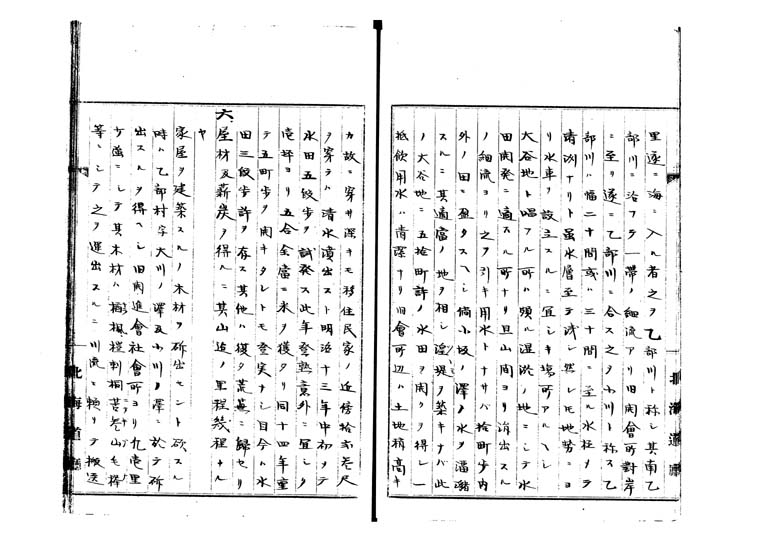 里遂ニ海ニ入ル者之ヲ乙部川ト称シ其南乙
部川ニ沿フテ一帯ノ細流アリ旧開會所對岸
ニ至リ遂ニ乙部川ニ合ス之ヲ小川ト称ス乙
部川ハ幅二十間或ハ三十間ニ至ル水極メテ
清冽ナリト雖水層至テ浅シ然レモ地勢ニヨ
リ水車ヲ設立スルニ宜シキ場所アルヘシ
大谷地ト唱フル所ハ頗ル湿洳ノ地ニシテ水
田開発ニ適スル所ナリ且山間ヨリ涓出スル
ノ細流ヨリ之ヲ引キ用水トナサハ拾町歩内
外ノ田ニ盈タスヘシ倘小坂ノ澤ノ水ヲ瀦
スルニ其適當ノ地ヲ相シ堤ヲ築キナハ此
ノ大谷地ニ五拾町許ノ水田ヲ開クヲ得レ一
抵飲用水ハ清潔ナリ旧會所辺ハ土地稍高キ
カ故ニ穿井深キモ移住民家ノ近傍拾弐叁尺
ヲ穿テハ清水濆出スト明治十三年中初テ
水田五段歩ヲ試発ス此年登熟意外ニ宜シク
壱坪ヨリ五合余當ニ米ヲ獲タリ同十四年重
テ五町歩ヲ開キタレトモ登実ナシ目今ハ水
田三段歩許ヲ存ス其他ハ復タ荒蕪ニ歸セリ
六屋材及薪炭ヲ得ルニ其山迠ノ里程幾程ナル
ヤ
家屋ヲ建築スルノ木材ヲ斫出セント欲スル
時ハ乙部村字大川ノ澤及小川ノ澤ニ於テ斫
出スルヲ得ヘシ旧開進會社會所ヨリ九壱里
ケ強ニシテ其木材ハ椴桂刺桐等山毛榉
等ニシテ之ヲ運出スルニ川流ニ頼リテ搬送
北海道廳
北海道廳